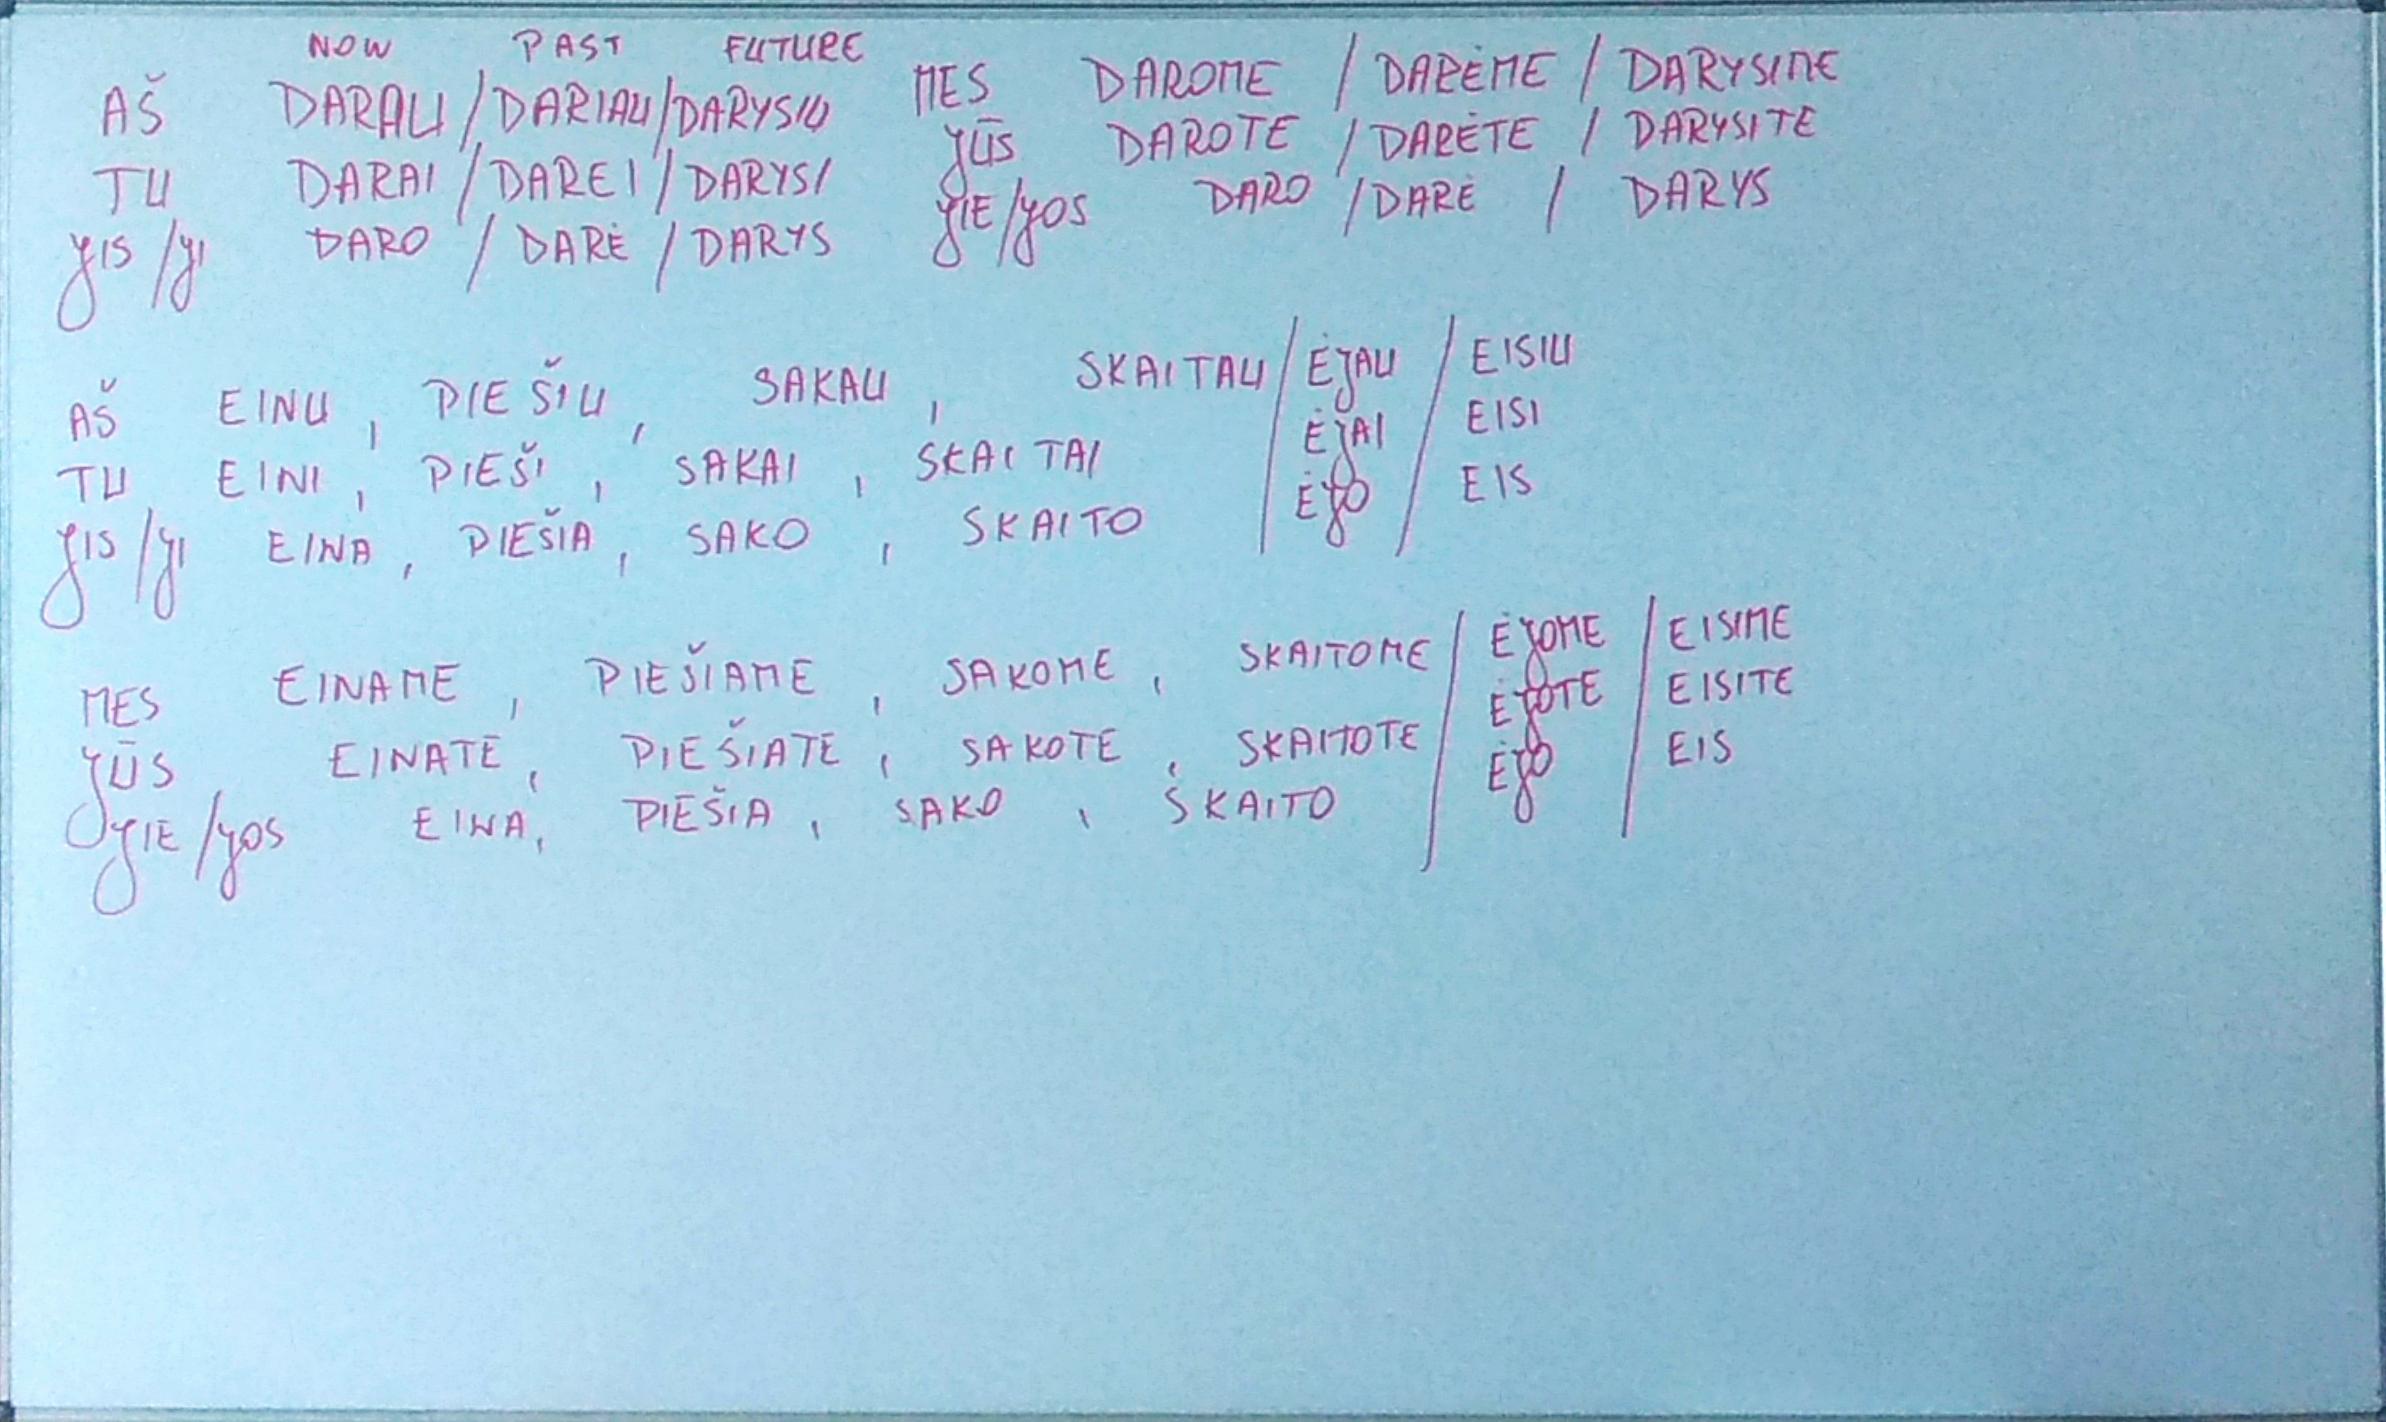 NOW PAST FUTURE
AŠ DARAU / DARIAU / DARYSIU
TU DARAI / DAREI / DARYSI
JIS / JI DARO / DARĖ / DARYS
MES DAROME / DARĖME / DARYSIME
JŪS DAROTE / DARĖTE / DARYSITE
JIE / JOS DARO / DARĖ / DARYS
AŠ EINU , PIEŠIU , SAKAU , SKAITAU / ĖJAU / EISIU
TU EINI , PIEŠI , SAKAI , SKAITAI / ĖJAI / EISI
JIS / JI EINA , PIEŠIA , SAKO , SKAITO / ĖJO / EIS
MES EINAME , PIEŠIAME , SAKOME , SKAITOME / ĖJOME / EISIME
JŪS EINATE , PIEŠIATE , SAKOTE , SKAITOTE / ĖJOTE / EISITE
JIE / JOS EINA , PIEŠIA , SAKO , SKAITO / ĖJO / EIS